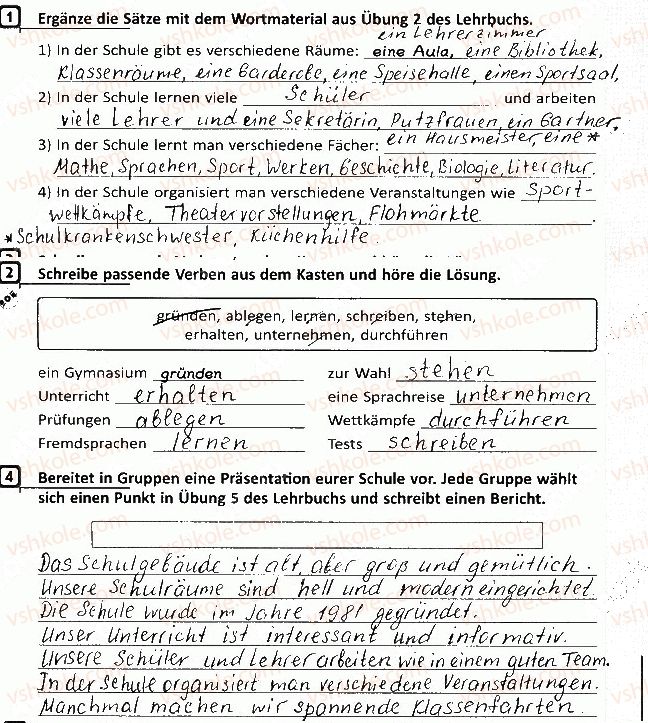 1 Ergänze die Sätze mit dem Wortmaterial aus Übung 2 des Lehrbuchs.
ein Lehrerzimmer
1) In der Schule gibt es verschiedene Räume: eine Aula, eine Bibliothek,
Klassenräume, eine Garderobe, eine Speisehalle, einen Sportsaal,
2) In der Schule lernen viele Schüler und arbeiten
viele Lehrer und eine Sekretärin, Putzfrauen, ein Gärtner,
3) In der Schule lernt man verschiedene Fächer: ein Hausmeister, eine *
Mathe, Sprachen, Sport, Werken, Geschichte, Biologie, Literatur.
4) In der Schule organisiert man verschiedene Veranstaltungen wie Sport-
wettkämpfe, Theatervorstellungen, Flohmärkte.
* Schulkrankenschwester, Küchenhilfe.
2 Schreibe passende Verben aus dem Kasten und höre die Lösung.
gründen, ablegen, lernen, schreiben, stehen,
erhalten, unternehmen, durchführen
ein Gymnasium gründen zur Wahl stehen
Unterricht erhalten eine Sprachreise unternehmen
Prüfungen ablegen Wettkämpfe durchführen
Fremdsprachen lernen Tests schreiben
4 Bereitet in Gruppen eine Präsentation eurer Schule vor. Jede Gruppe wählt
sich einen Punkt in Übung 5 des Lehrbuchs und schreibt einen Bericht.
Das Schulgebäude ist alt, aber groß und gemütlich.
Unsere Schulräume sind hell und modern eingerichtet
Die Schule wurde im Jahre 1981 gegründet.
Unser Unterricht ist interessant und informativ.
Unsere Schüler und Lehrer arbeiten wie in einem guten Team.
In der Schule organisiert man verschiedene Veranstaltungen.
Manchmal machen wir spannende Klassenfahrten.
vshkole.com